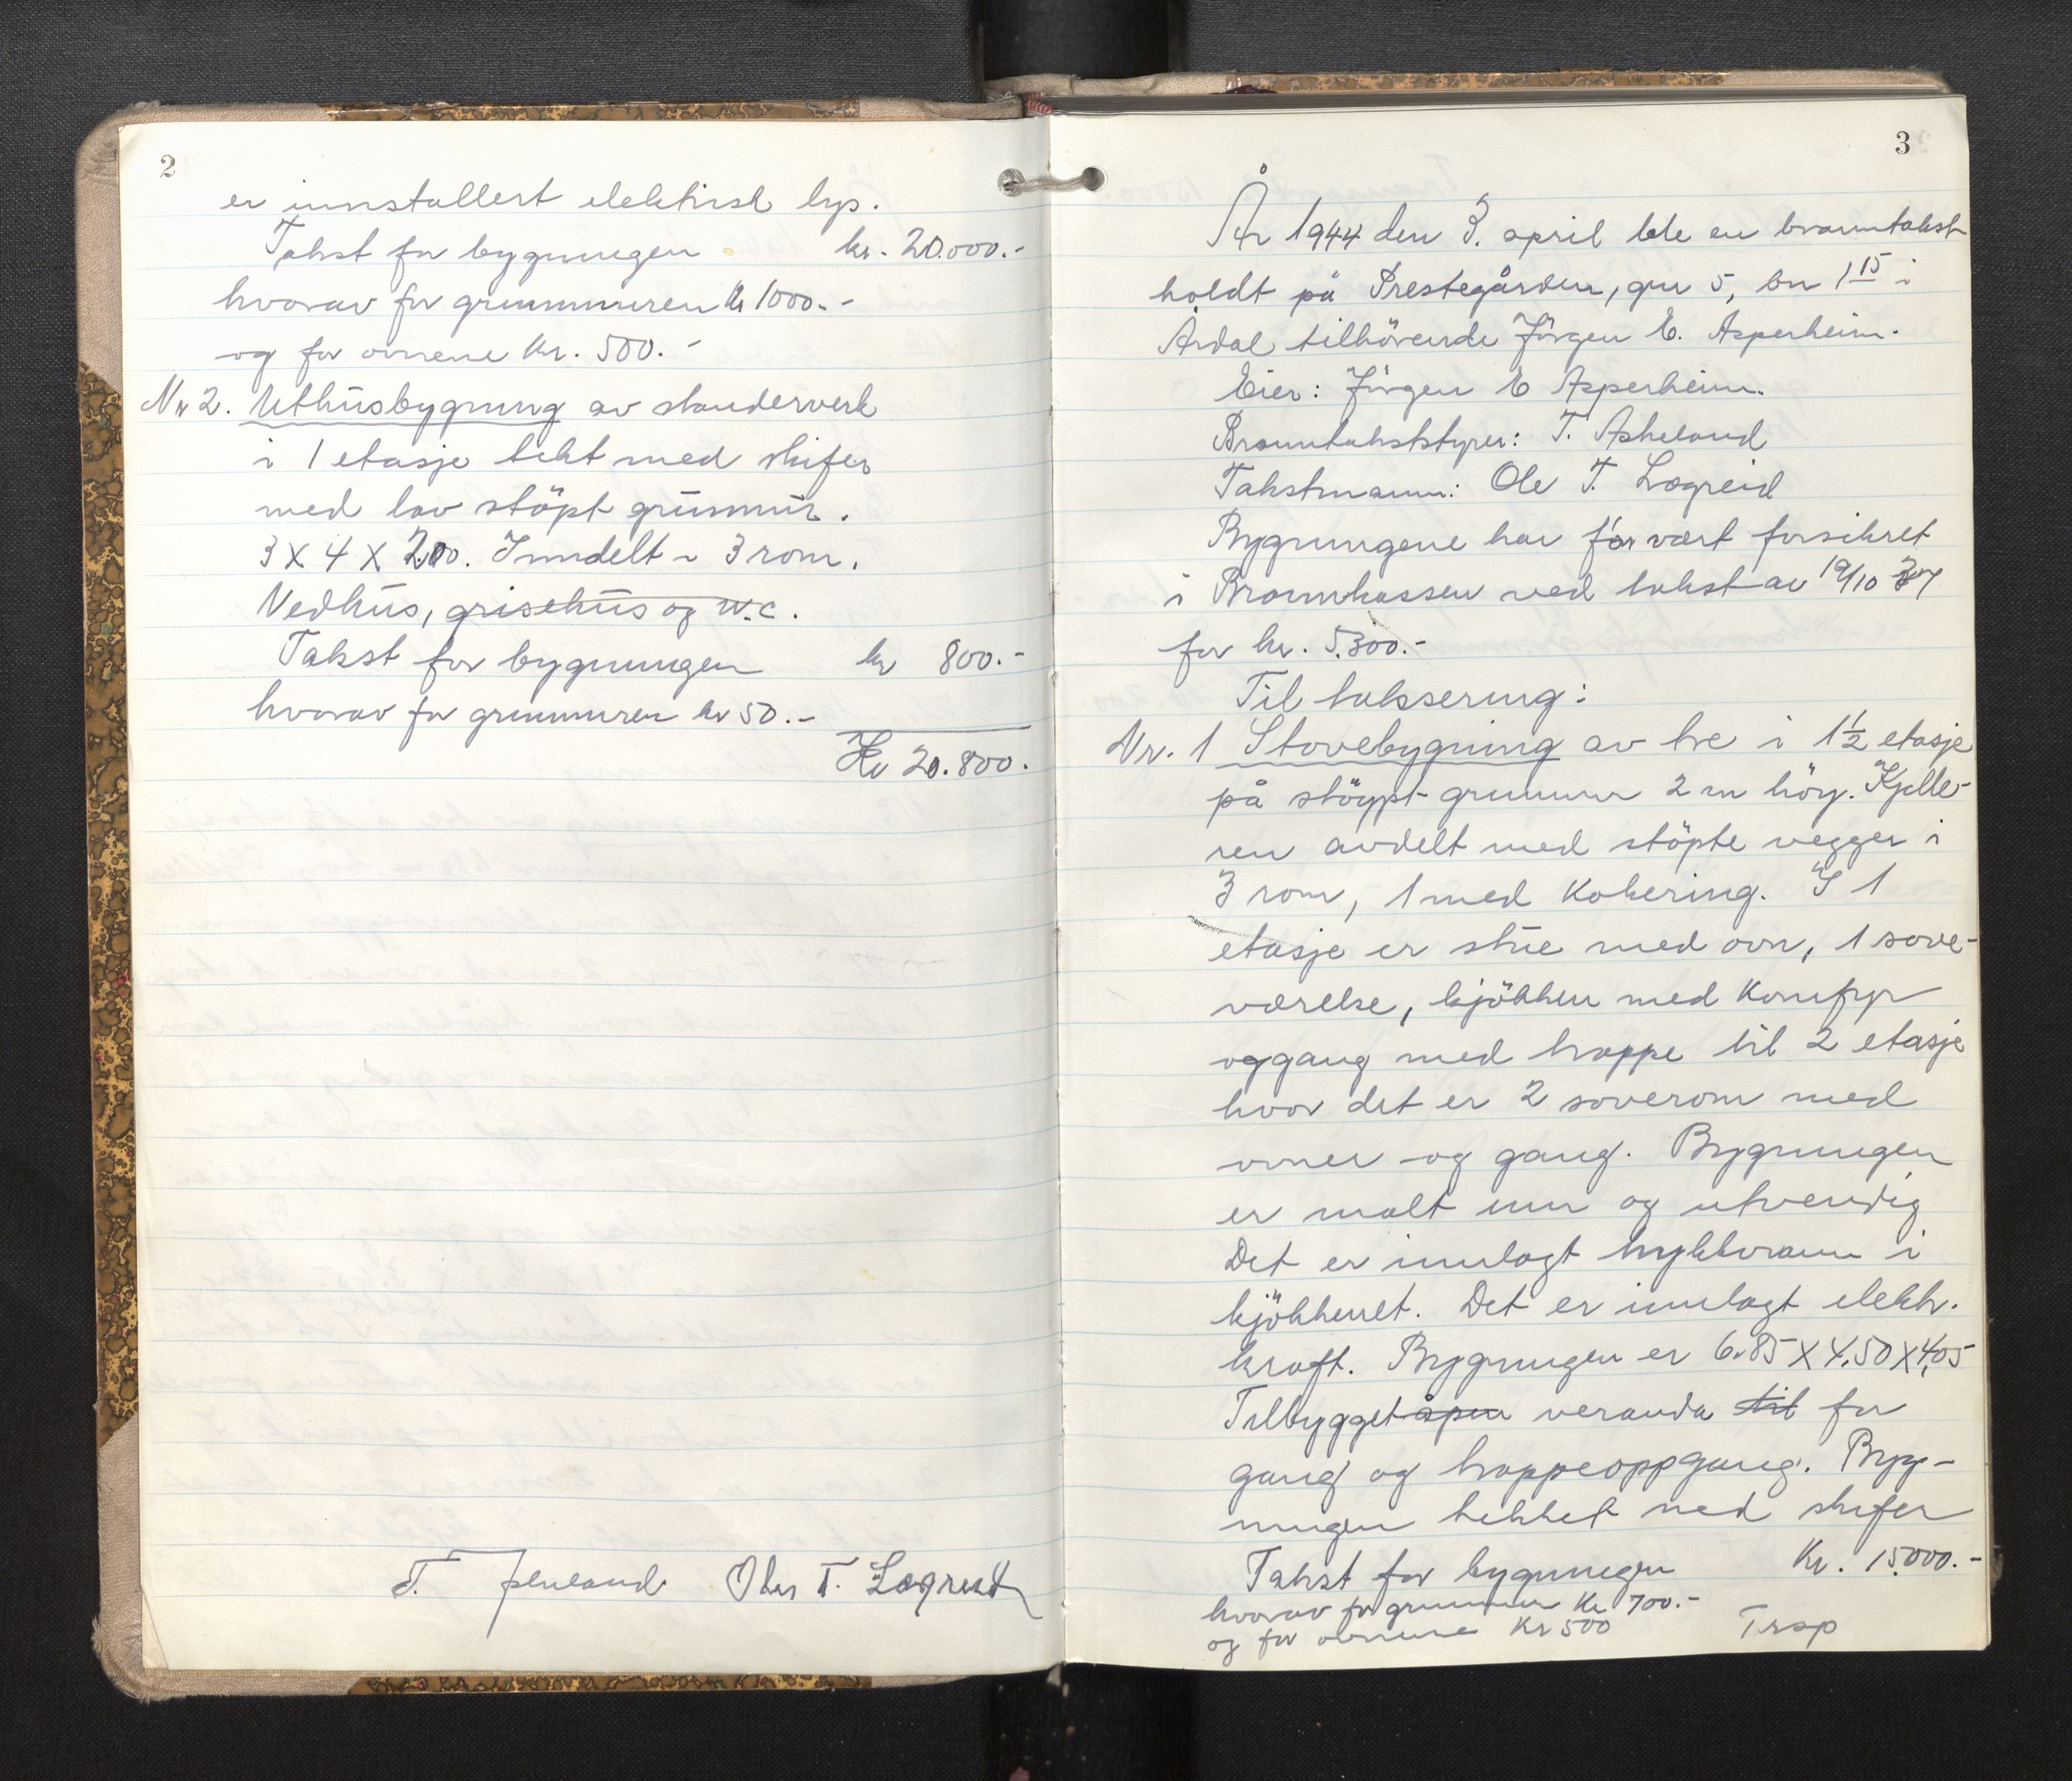 2
er innstallert elektrisk lys.
Takst for bygningen kr. 20.000.-
hvorav for grunnmuren kr 1000.-
og for ovnene kr. 500.-
Nr 2. Uthusbygning av standerverk
i 1 etasje tekt med skifer
med lav stöpt grunnmur.
3 X 4 X 2.00. Inndelt i 3 rom.
Vedhus, grisehus og w.c.
Takst for bygningen kr 800.-
hvorav for grunnmuren kr 50.-
Kr 20.800.-
T. Askeland Ole T. Lægreid
3
År 1944 den 3. april ble en branntakst
holdt på Prestegården, gnr 5, bn 1 15 i
Årdal tilhörende Jörgen E. Asperheim.
Eier: Jörgen E Asperheim.
Branntakststyrer: T. Askeland
Takstmann: Ole T. Lægreid
Bygningene har för vært forsikret
i Brannkassen ved takst av 19/10 37
for kr. 5.300.-
Til taksering:
Nr. 1 Stovebygning av tre i 1 1/2 etasje
på stöypt grunnmur 2 m höy. Kjelle-
ren avdelt med stöpte vegger i
3 rom, 1 med Kokering. I 1
etasje er stue med ovn, 1 sove-
værelse, kjökken med Komfyr
og gang med trappe til 2 etasje
hvor det er 2 soverom med
ovner og gang. Bygningen
er malt inn og utvendig
Det er innlagt trykkvann i
kjökkenet. Det er innlagt elektr.
kraft. Bygningen er 6.85 X 4.50 X 4.05
Tilbygget åpen veranda til for
gang og trappeoppgang. Byg-
ningen tekket med skifer
Takst for bygningen Kr. 15.000.-
hvorav for grunnmur Kr 700.-
og for ovnene Kr 500 Trsp